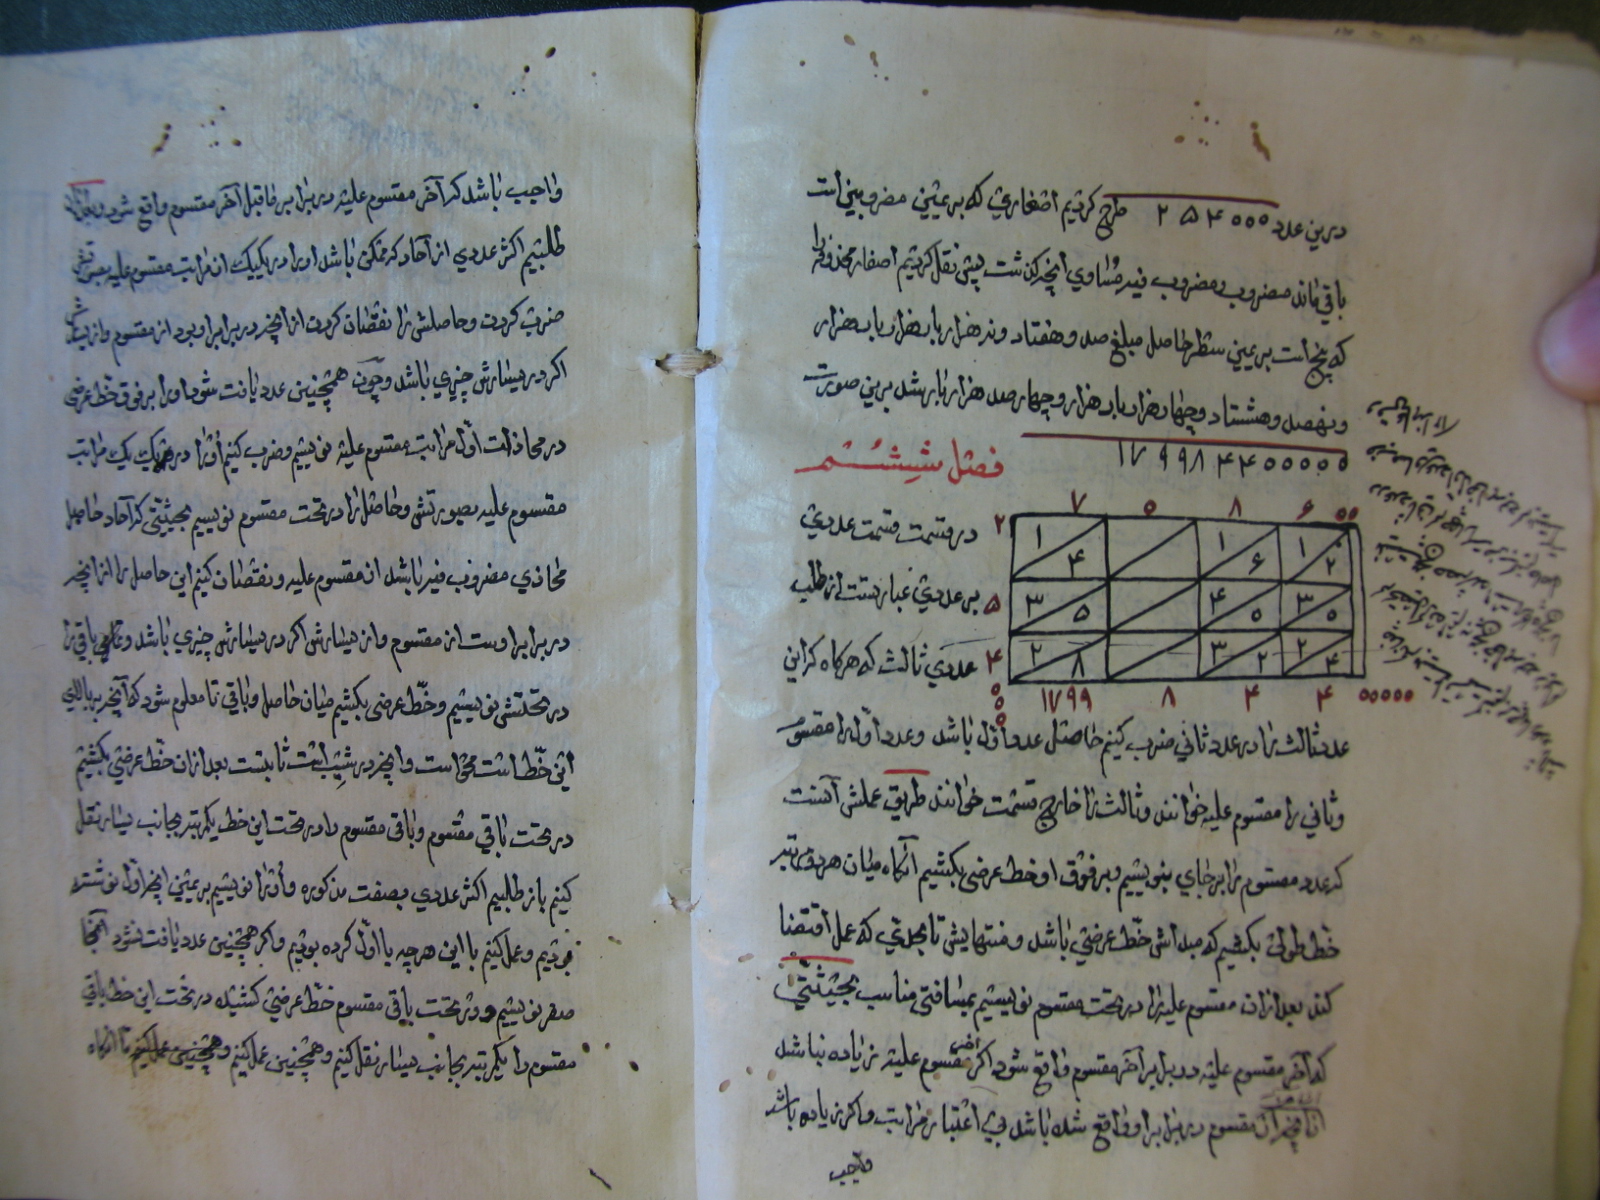 درین عدد ۲۵۴۰۰۰ طرح کردیم اصفاری که بر یمین مضروبین است
باقی ماند مضروب و مضروب فیه مساوی آنچه گذشت پیش نقل کردیم اصفار محذوفه را
که پنج است بر یمین سطر حاصل مبلغ صد و هفتاد و نه هزار بار هزار بار هزار
و نهصد و هشتاد و چهار هزار بار هزار و چهار صد هزار بار شد برین صورت
۱۷۹۹۸۴۴۰۰۰۰۰
فصل ششم
۷ ۰ ۸ ۶ ۰۰
۲ ۱ ۴ ۱ ۶ ۱ ۲
۵ ۳ ۵ ۴ ۰ ۳ ۰
۴ ۲ ۸ ۳ ۲ ۲ ۴
۰
۰
۰
۱۷۹۹ ۸ ۴ ۴ ۰۰۰۰۰
در قسمت قسمت عددی
بر عددی عبارتست از طلب
عددی ثالث که هرگاه که این
عدد ثالث را در عدد ثانی ضرب کنیم حاصل عدد اول باشد و عدد اول را مقسوم
و ثانی را مقسوم علیه خوانند و ثالث را خارج قسمت خوانند طریق عملش آنست
که عدد مقسوم را بر جای بنویسیم و بر فوق او خط عرضی بکشیم آنگاه میان هر دو مرتبه
خط طولی بکشیم که مبدأش خط عرضی باشد و منتهایش تا بجدی که عمل اقتضا
کند بعد ازان مقسوم علیه را در تحت مقسوم نویسیم بمسافتی مناسب بحیثیتی
که آخر مقسوم علیه در برابر آخر مقسوم واقع شود اگر آخر مقسوم علیه زیاده نباشد
از آنچه از مقسوم در برابر او واقع شده باشد بی اعتبار مراتب و اگر زیاده باشد
واجب
واجب باشد که آخر مقسوم علیه در برابر ماقبل آخر مقسوم واقع شود و بعد ازان
طلبیم اکثر عددی از آحاد که ممکن باشد او را در یکیک از مراتب مقسوم علیه بصورتش
ضرب کردن و حاصلش را نقصان کردن از آنچه در برابر او بود از مقسوم و از یسارش
اگر در یسارش چیزی باشد و چون همچنین عدد یافت شود او را بر فوق خط عرضی
در محاذات اول مراتب مقسوم علیه نویسیم و ضرب کنیم او را در هر یک یک مراتب
مقسوم علیه بصورتش و حاصل را در تحت مقسوم نویسیم بحیثیتی که آحاد حاصل
محاذی مضروب فیه باشد از مقسوم علیه و نقصان کنیم این حاصل را از آنچه
در برابر اوست از مقسوم و از یسارش اگر در یسارش چیزی باشد و باقی را
در تحتش نویسیم و خط عرضی بکشیم میان حاصل و باقی تا معلوم شود که آنچه بر بالای
این خط است محو است و آنچه در شیب است ثابتست بعد ازان خط عرضی بکشیم
در تحت باقی مقسوم و باقی مقسوم را در تحت این خط یکمرتبه بجانب یسار نقل
کنیم باز طلبیم اکثر عددی بصفت مذکوره و او را نویسیم بر یمین آنچه اول نوشته
بودیم و عمل کنیم با این هرچه با اول کرده بودیم و اگر همچنین عدد یافت نشود آنجا
صفر نویسیم و در تحت باقی مقسوم خط عرضی کشیده در تحت این خط باقی
مقسوم را یکمرتبه بجانب یسار نقل کنیم و همچنین عمل کنیم و همچنین عمل کنیم تا آنگاه